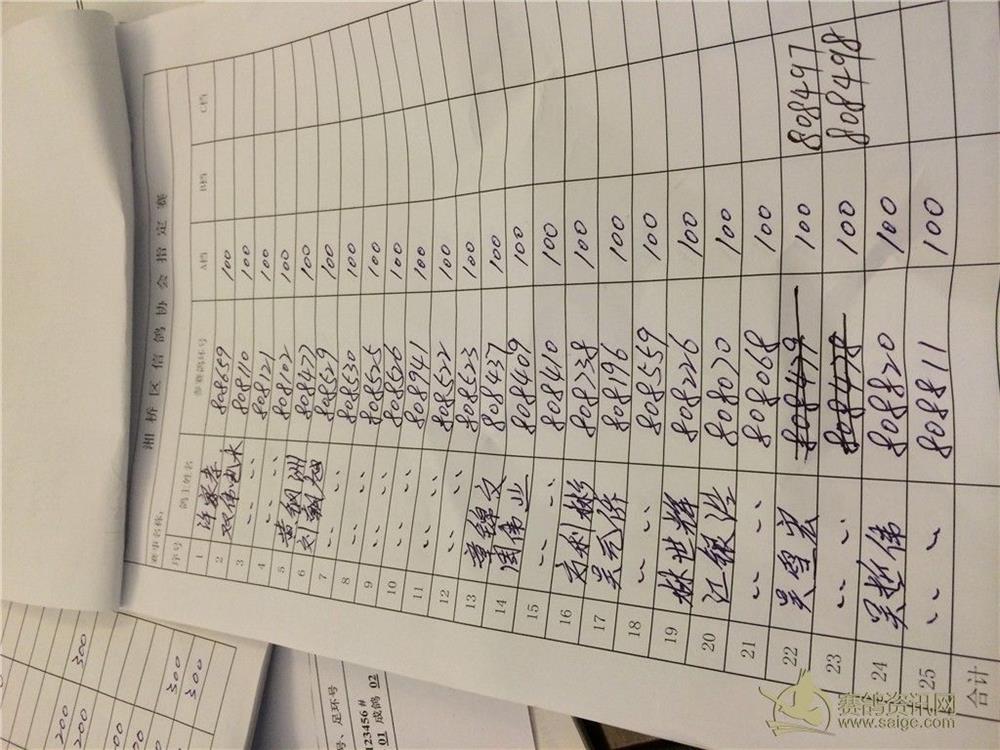 湘桥区信鸽协会指定赛
赛事名称：
序号 鸽主姓名 参赛鸽环号 A档 B档 C档
1 808659 100
2 808110 100
3 〃 808121 100
4 〃 808102 100
5 黄钢洲 808477 100
6 808529 100
7 〃 808530 100
8 〃 808525 100
9 〃 808526 100
10 〃 808941 100
11 〃 808522 100
12 〃 808523 100
13 章锦文 808437 100
14 周伟业 808409 100
15 〃 808410 100
16 方利彬 808738 100
17 808196 100
18 〃 808559 100
19 林世辉 808226 100
20 江银浩 808070 100
21 〃 808068 100
22 吴雪宏 808479 100 808497
23 〃 808478 100 808498
24 吴哲伟 808820 100
25 〃 808811 100
合计
200 300
200
00 300
00 300
号、足环号
123456 #
01 成鸽 02
赛鸽资讯网
www.saige.com